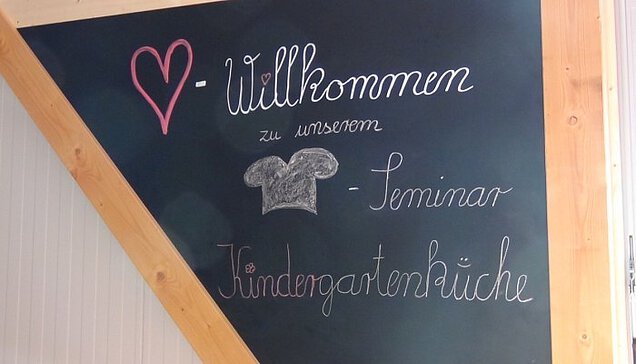 - Willkommen
zu unserem
- Seminar
Kindergartenküche